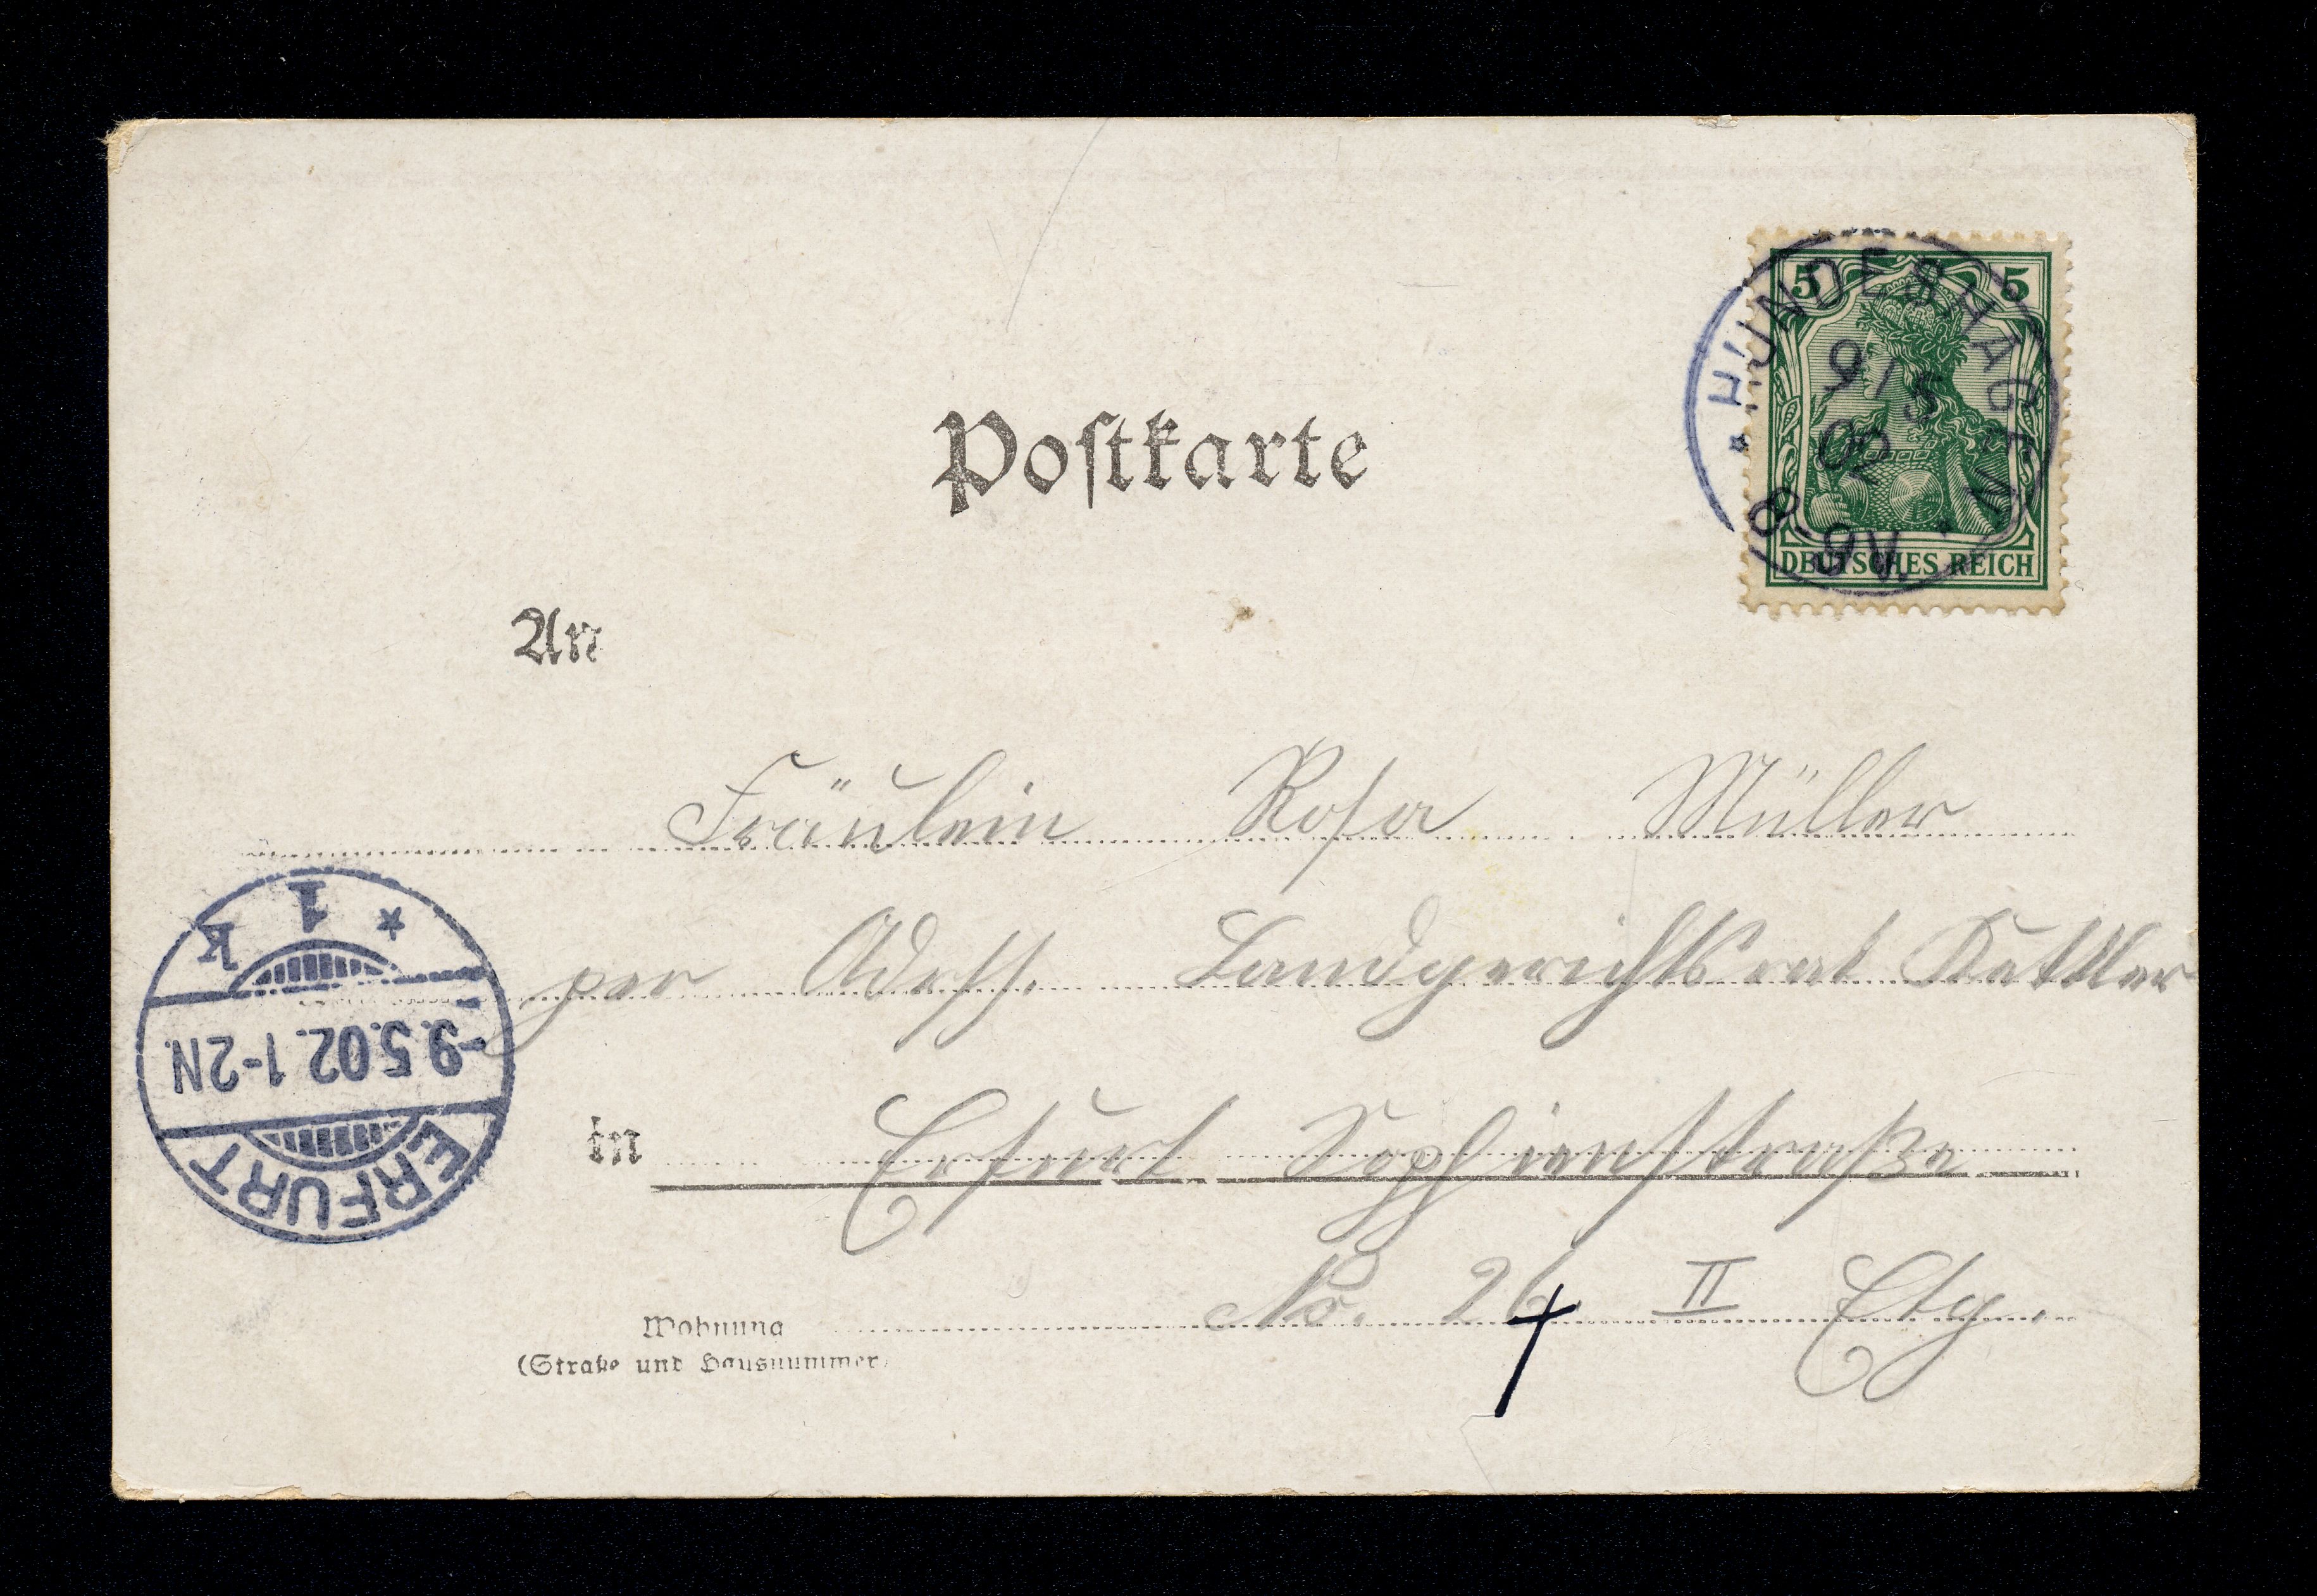 Postkarte
5 5
HUNDESHAGEN
9/5
02
8-9V.
DEUTSCHES REICH
An
Fräulein Rosa Müller
per Adess. Landgerichtsrat Kettler
in Erfurt Sophienstraße
No. 24 II Etg.
Wohnung
(Straße und Hausnummer)
ERFURT
-9.5.02. 1-2N.
* 1 k